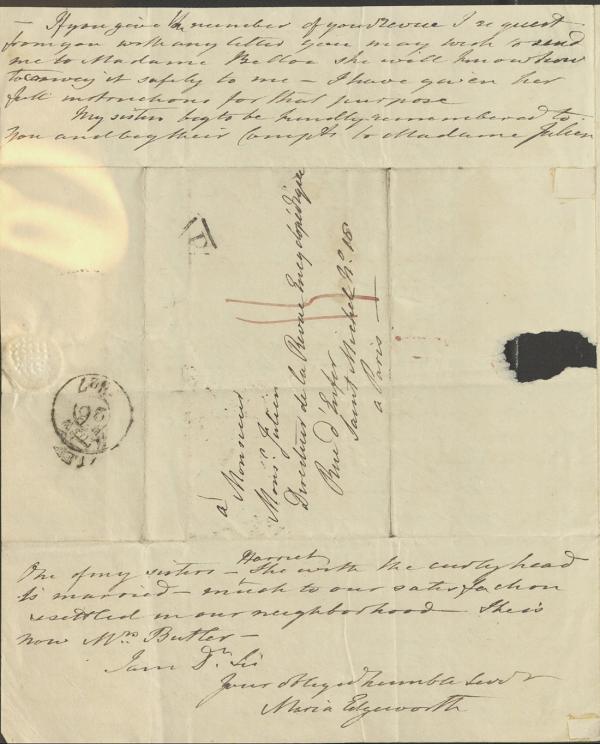 — If you give the number of your Revue I request
from you with any letter you may wish to send
me to Madame Belloc she will know how
to convey it safely to me — I have given her
full instructions for that purpose
My sisters beg to be kindly remembered to
you and beg their Compts to Madame Julien
à Monsieur
Monsr. Julien
Directeur de la Revue Encyclopédique
Rue d'Enfer
Saint Michel No. 18
à Paris —
One of my sisters — Harriet She with the curly head
is married — much to our satisfaction
& settled in our neighborhood — She is
now Mrs Butler —
I am Dr Sir
Your obliged humble Servt
Maria Edgeworth